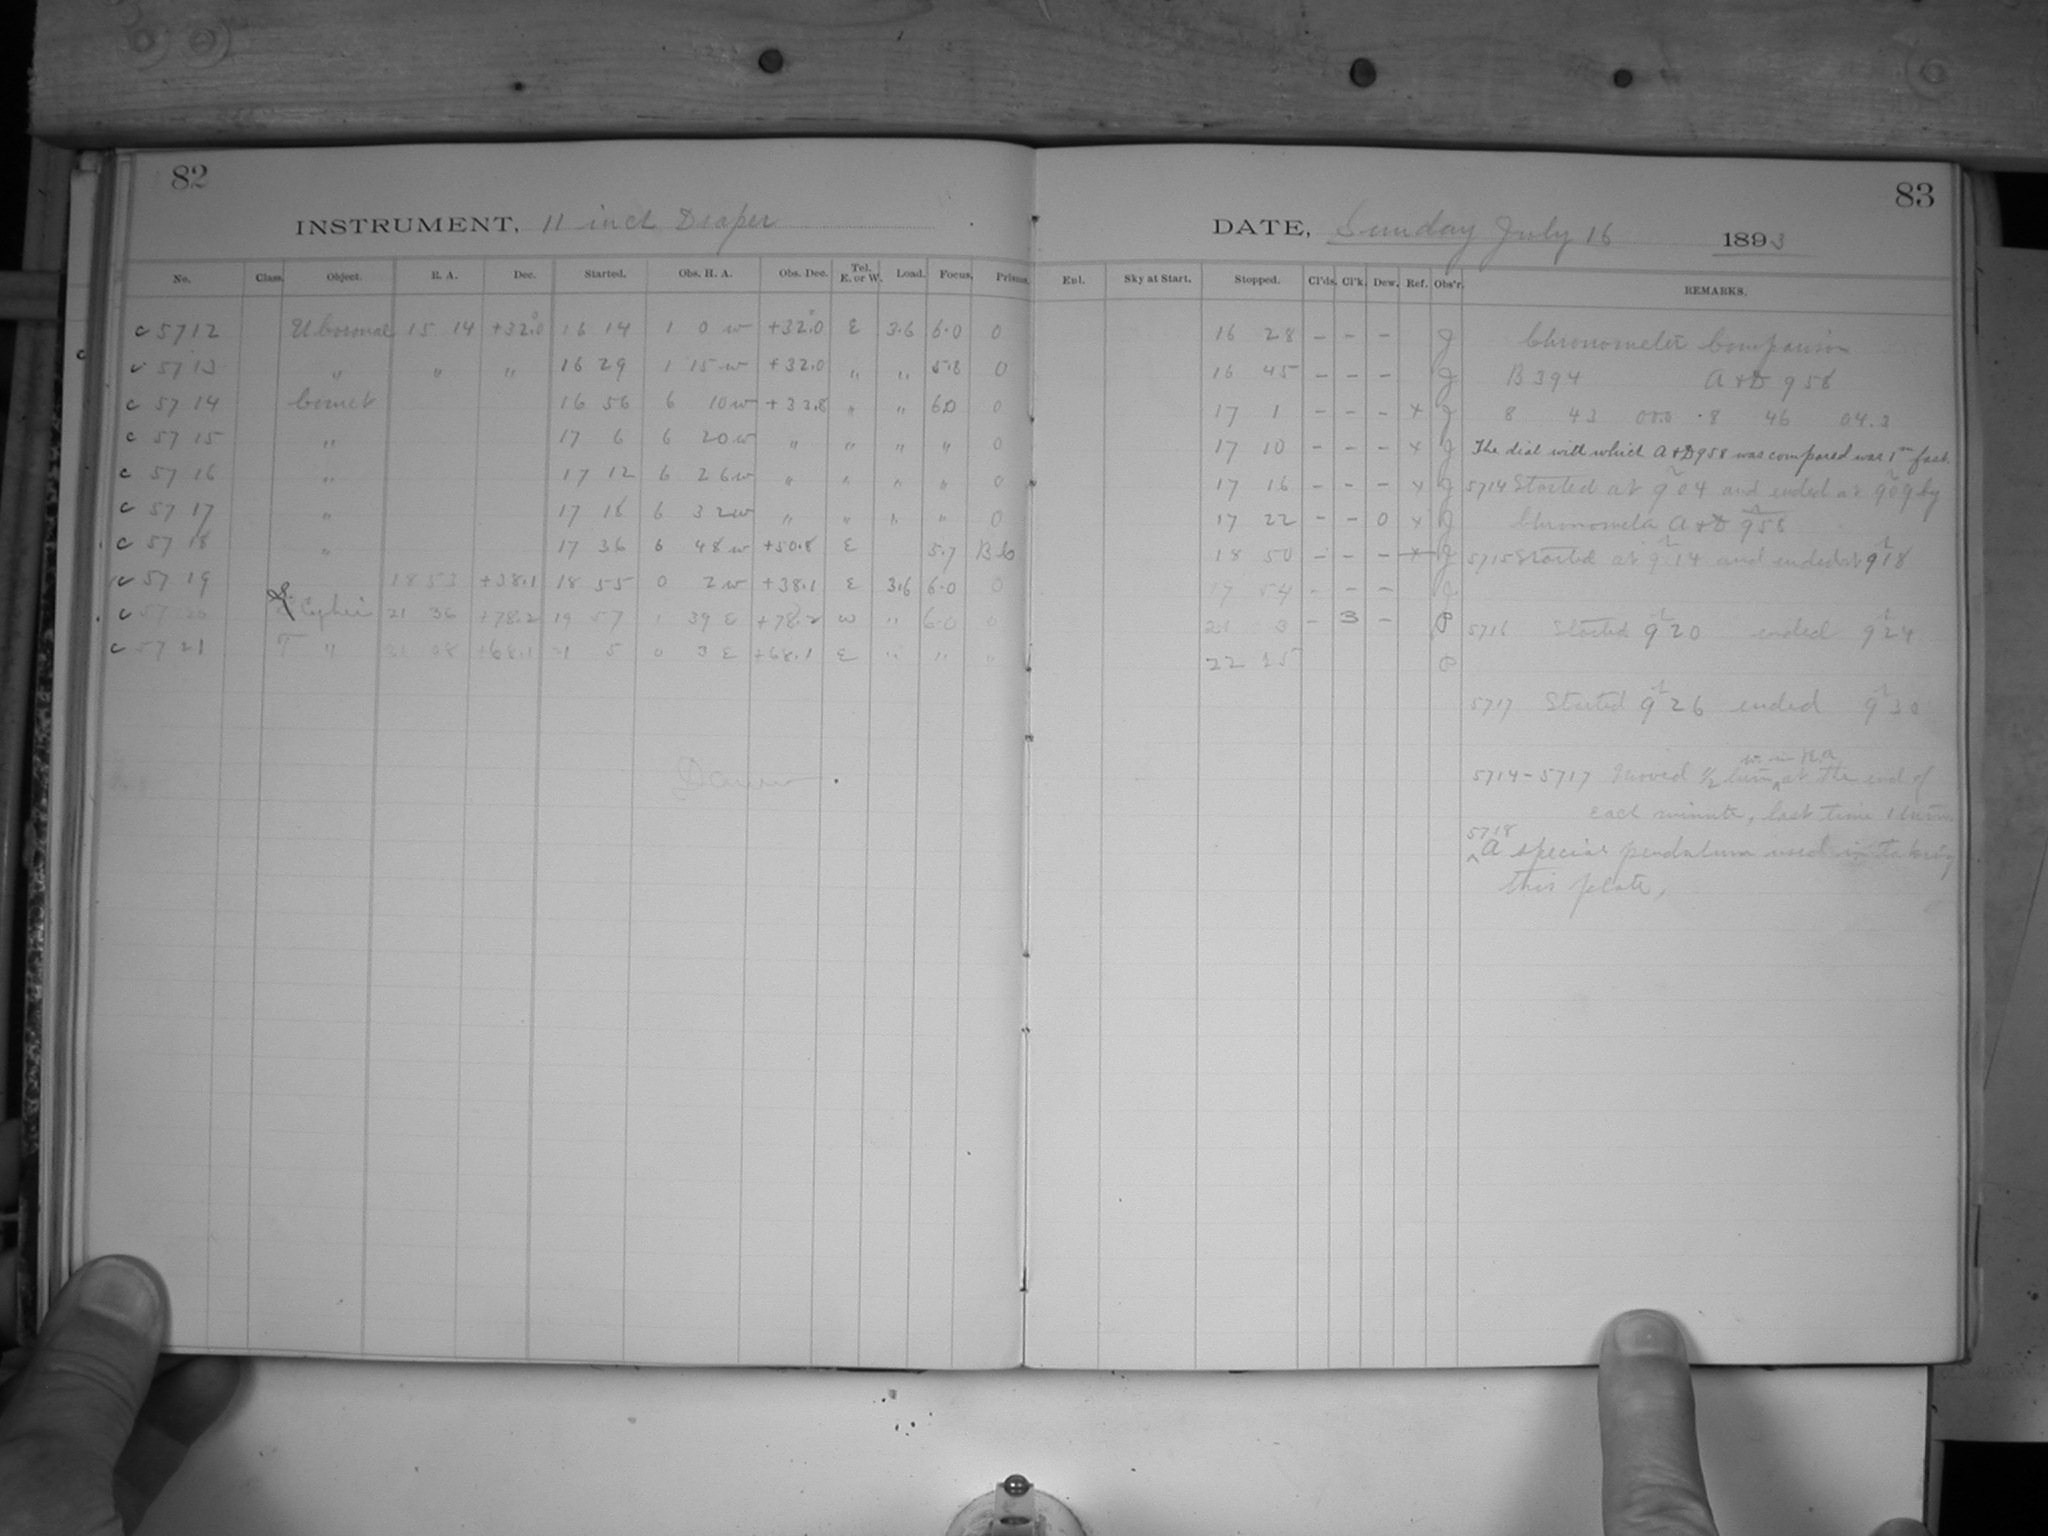 82
INSTRUMENT, 11 inch Draper
No. Class. Object. R. A. Dec. Started. Obs. H. A. Obs. Dec. Tel. E. or W. Load. Focus. Prisms.
c 5712 U Coronae 15 14 +32.0 16 14 1 0 w +32.0 E 3.6 6.0 0
c 5713 " " " 16 29 1 15 w +32.0 " " 5.8 0
c 5714 Comet 16 56 6 10 w +33.8 " " 6.0 0
c 5715 " 17 6 6 20 w " " " " 0
c 5716 " 17 12 6 26 w " " " " 0
c 5717 " 17 18 6 32 w " " " " 0
c 5718 " 17 36 6 48 w +50.8 E 5.7 B6
c 5719 18 53 +38.1 18 55 0 2 w +38.1 E 3.6 6.0 0
c 5720 S Cephei 21 36 +78.2 19 57 1 39 E +78.2 w " 6.0 0
c 5721 T " 21 08 +68.1 21 5 0 3 E +68.1 E " " "
Dawn.
83
DATE, Sunday July 16 1893
Enl. Sky at Start. Stopped. Cl'ds. Cl'k. Dew. Ref. Obs'r. REMARKS.
16 28 – – – J Chronometer Comparison
16 45 – – – J B 394 A & D 958
17 1 – – – x J 8 43 00.0 8 46 04.3
17 10 – – – x J The dial with which A & D 958 was compared was 1m fast.
17 16 – – – x J 5714 Started at 9h 04 and ended at 9h 09 by
17 22 – – 0 x J Chronometer A & D 958
18 50 – – – x J 5715 Started at 9h 14 and ended at 9h 18
17 54 – – – J
21 3 – 3 – P 5716 Started 9h 20 ended 9h 24
22 15 P
5717 Started 9h 26 ended 9h 30
5714 – 5717 Moved 1/2 turn w. in H.A. at the end of
each minute, last time 1 turn
5718 A special pendulum used in taking
this plate,